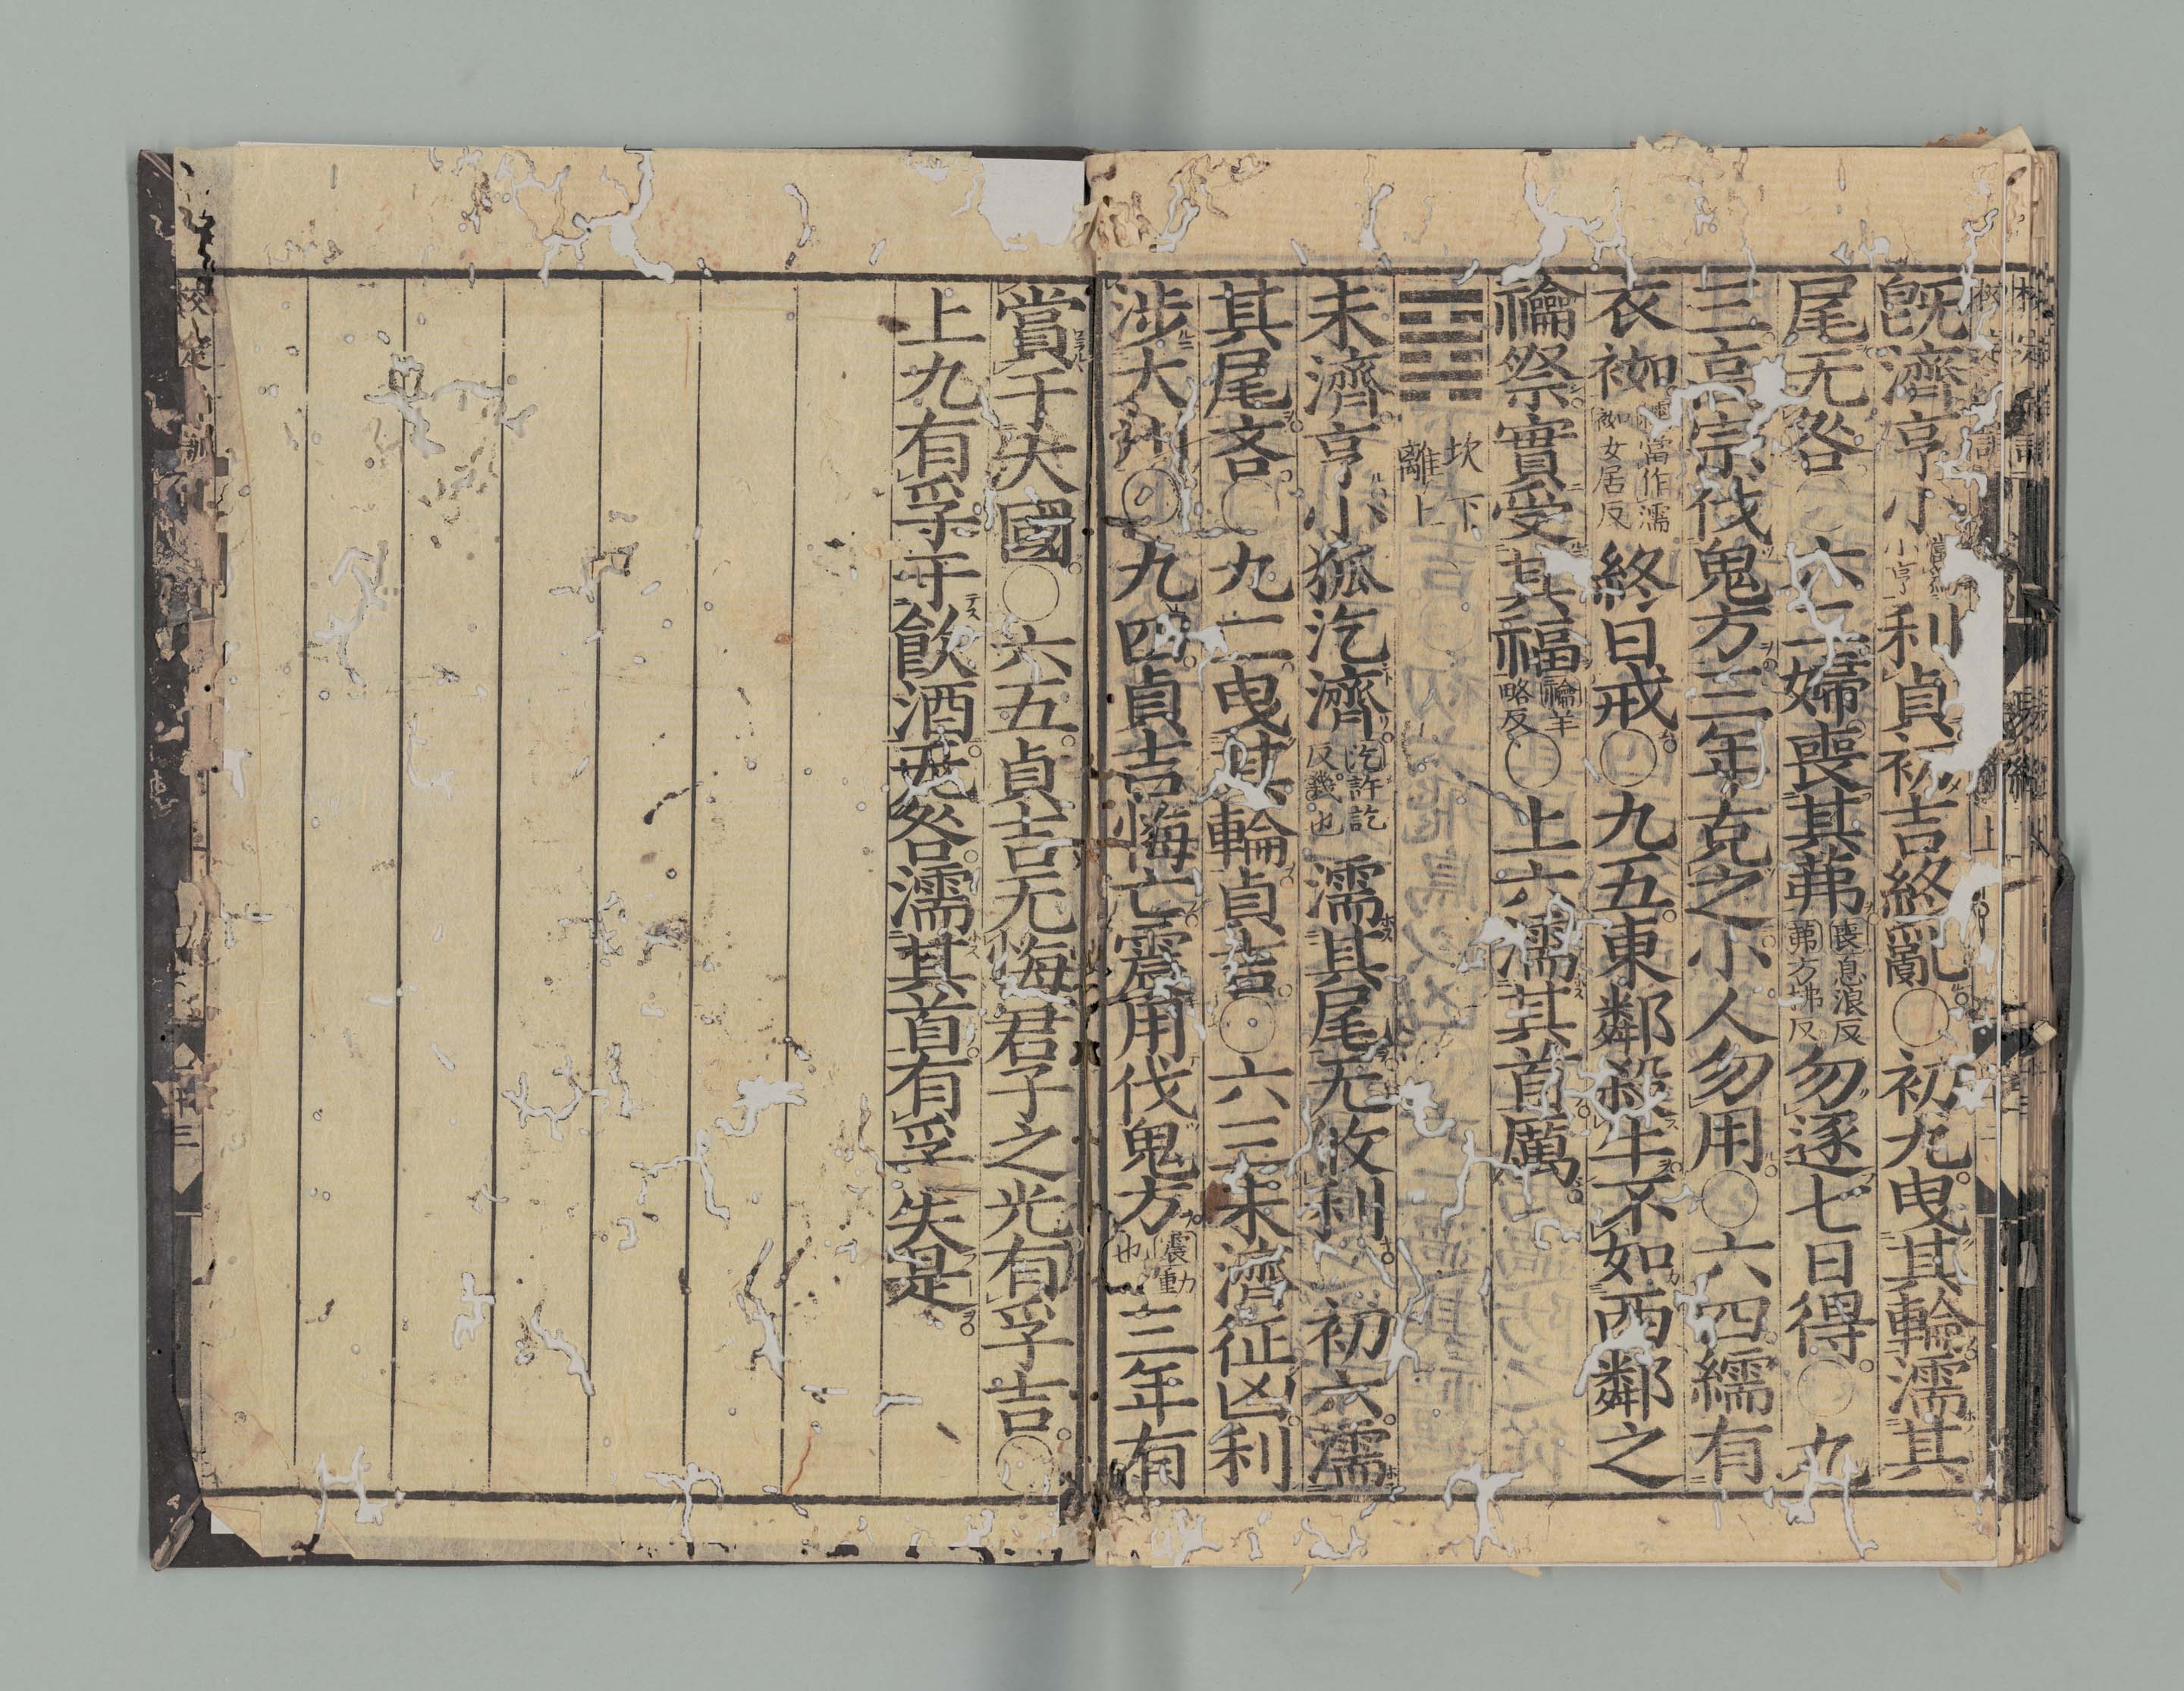 既濟亨小當爲小亨利貞初吉終亂○初九曳其輪濡其
尾无咎○六二婦喪其茀喪息浪反茀方拂反勿逐七日得○九
三高宗伐鬼方三年克之小人勿用○六四繻有
衣袽繻當作濡袽女居反終日戒○九五東鄰殺牛不如西鄰之
禴祭實受其福禴羊略反○上六濡其首厲
坎下離上
未濟亨小狐汔濟汔許訖反幾也濡其尾无攸利○初六濡
其尾吝○九二曳其輪貞吉○六三未濟征凶利
涉大川○九四貞吉悔亡震用伐鬼方震動也三年有
賞于大國○六五貞吉无悔君子之光有孚吉○
上九有孚于飮酒无咎濡其首有孚失是